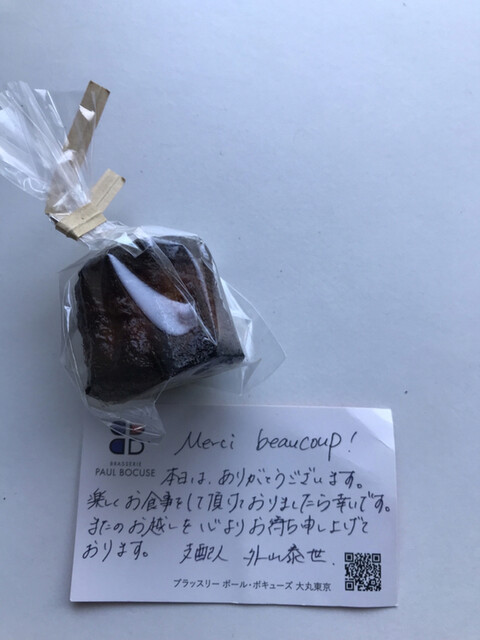 Merci beaucoup!
BRASSERIE
PAUL BOCUSE
本日は、ありがとうございます。
楽しくお食事をして頂けておりましたら幸いです。
またのお越しを心よりお待ち申し上げて
おります。 支配人 外山泰世.
ブラッスリー ポール・ボキューズ 大丸東京